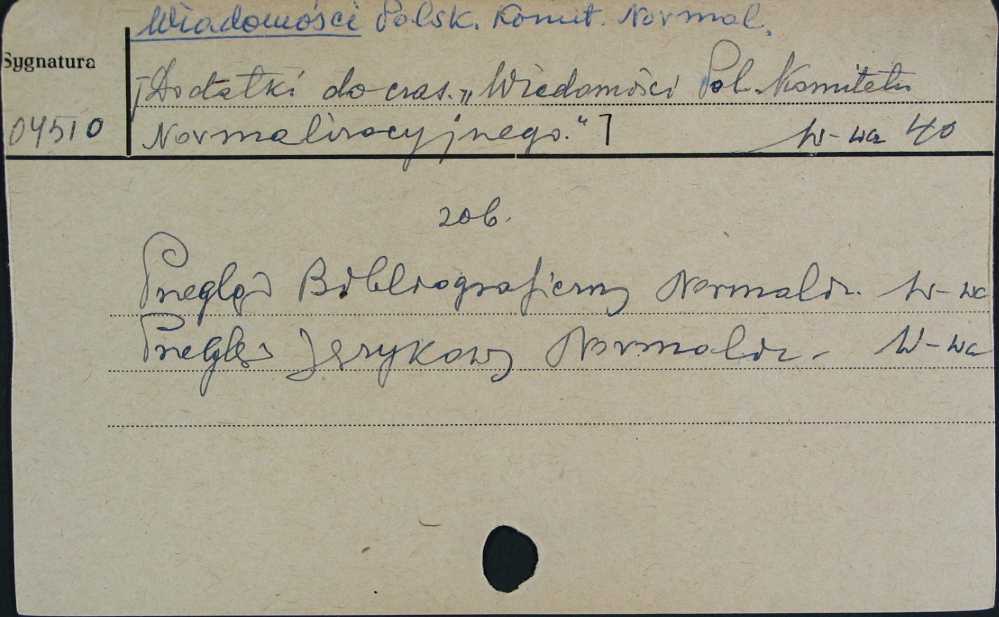 Wiadomości Polsk. Komit. Normal.
Sygnatura
[Dodatki do czas. „Wiadomości Pol. Komitetu
04510
Normalizacyjnego.“] W-wa 40
zob.
Przegląd Bibliograficzny Normaliz. W-wa
Przegląd Językowy Normaliz. W-wa